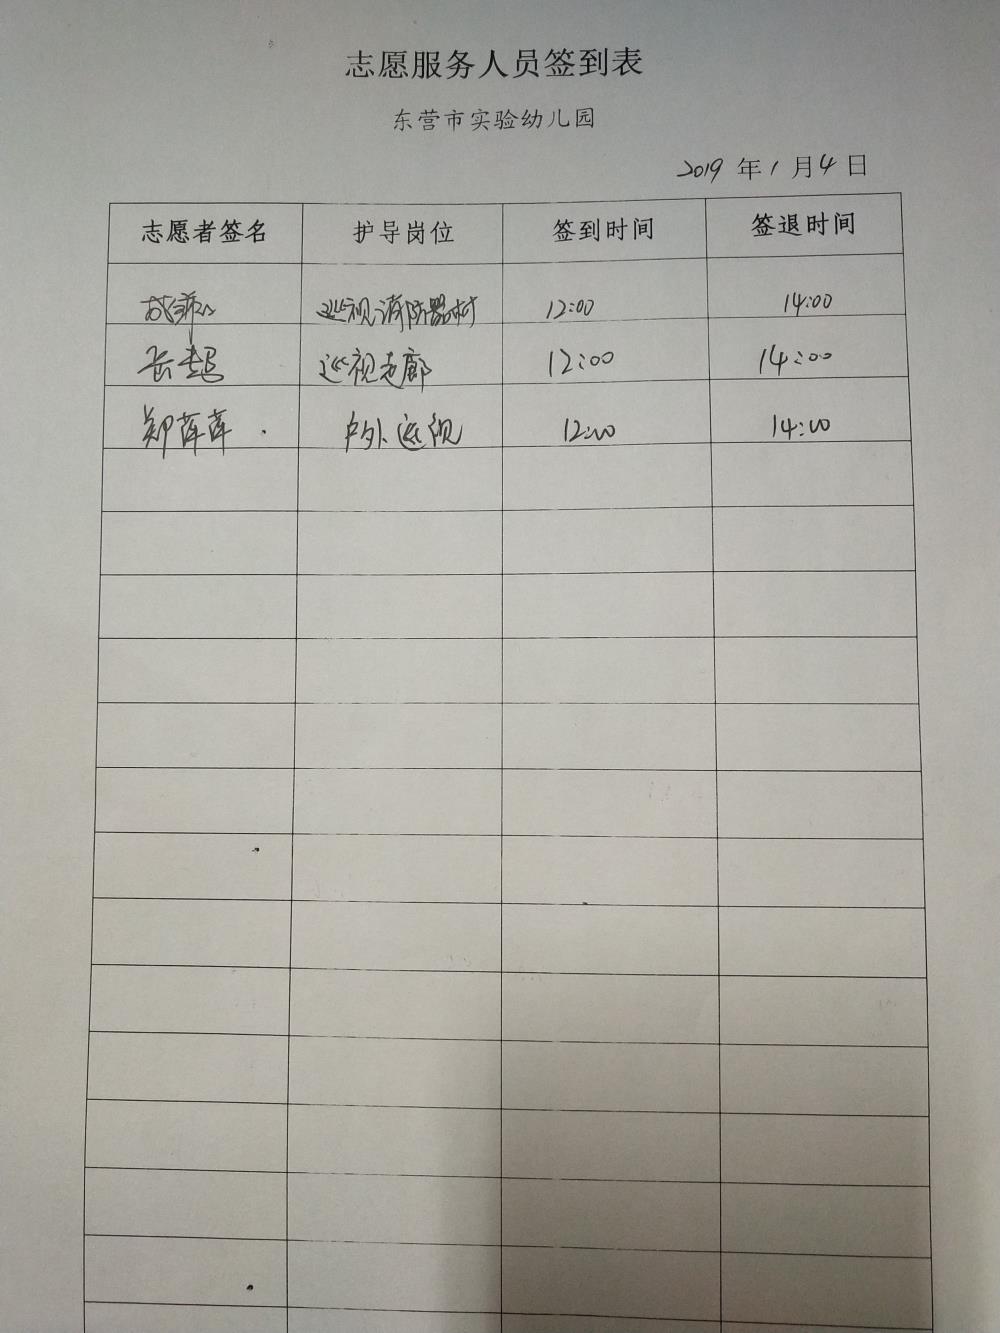 志愿服务人员签到表
东营市实验幼儿园
2019 年 1 月 4 日
志愿者签名 护导岗位 签到时间 签退时间
巡视消防器材 12:00 14:00
巡视走廊 12:00 14:00
郑萍萍 户外巡视 12:00 14:00